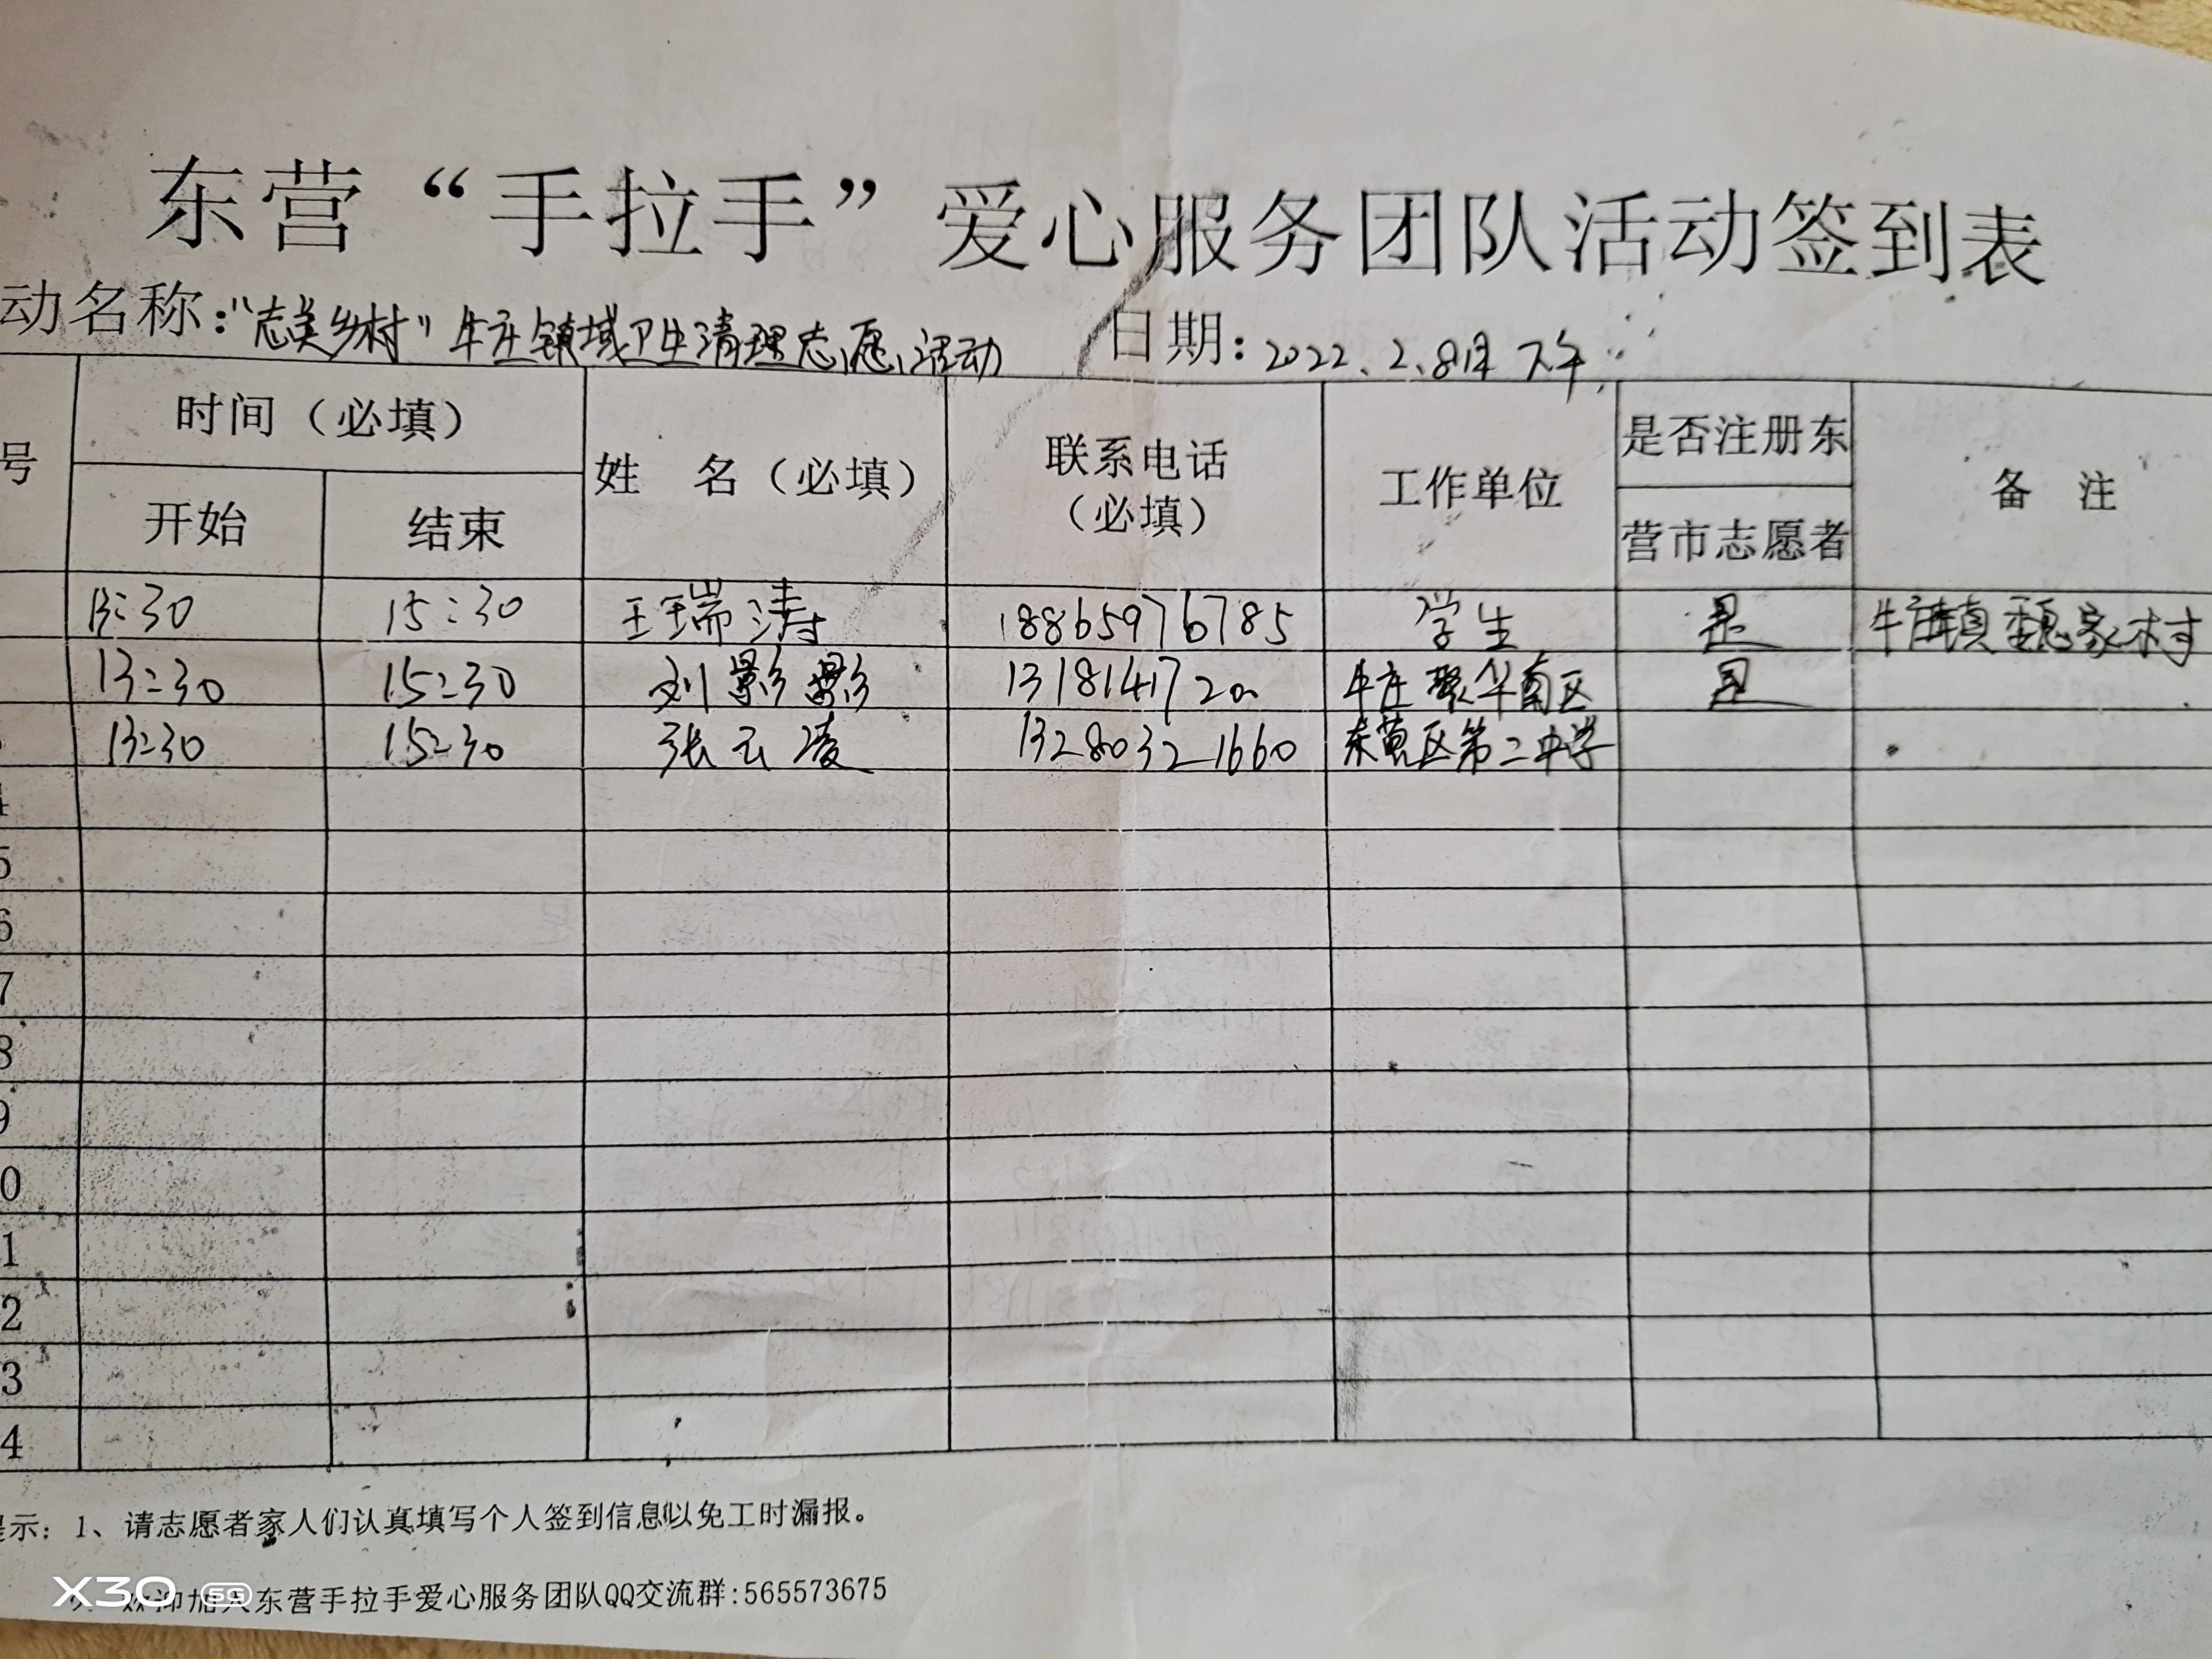 东营“手拉手”爱心服务团队活动签到表
动名称:“志美乡村”牛庄镇域卫生清理志愿活动 日期:2022.2.8日下午
号 时间（必填） 姓 名（必填） 联系电话（必填） 工作单位 是否注册东营市志愿者 备 注
开始 结束
13:30 15:30 王瑞涛 18865976785 学生 是 牛庄镇魏家村
13:30 15:30 刘影影 牛庄聚华南区 是
13:30 15:30 张云凌 13280321660 东营区第二中学
4
5
6
7
8
9
0
1
2
3
4
示: 1、请志愿者家人们认真填写个人签到信息以免工时漏报。
欢迎加入东营手拉手爱心服务团队QQ交流群:565573675
X30 5G